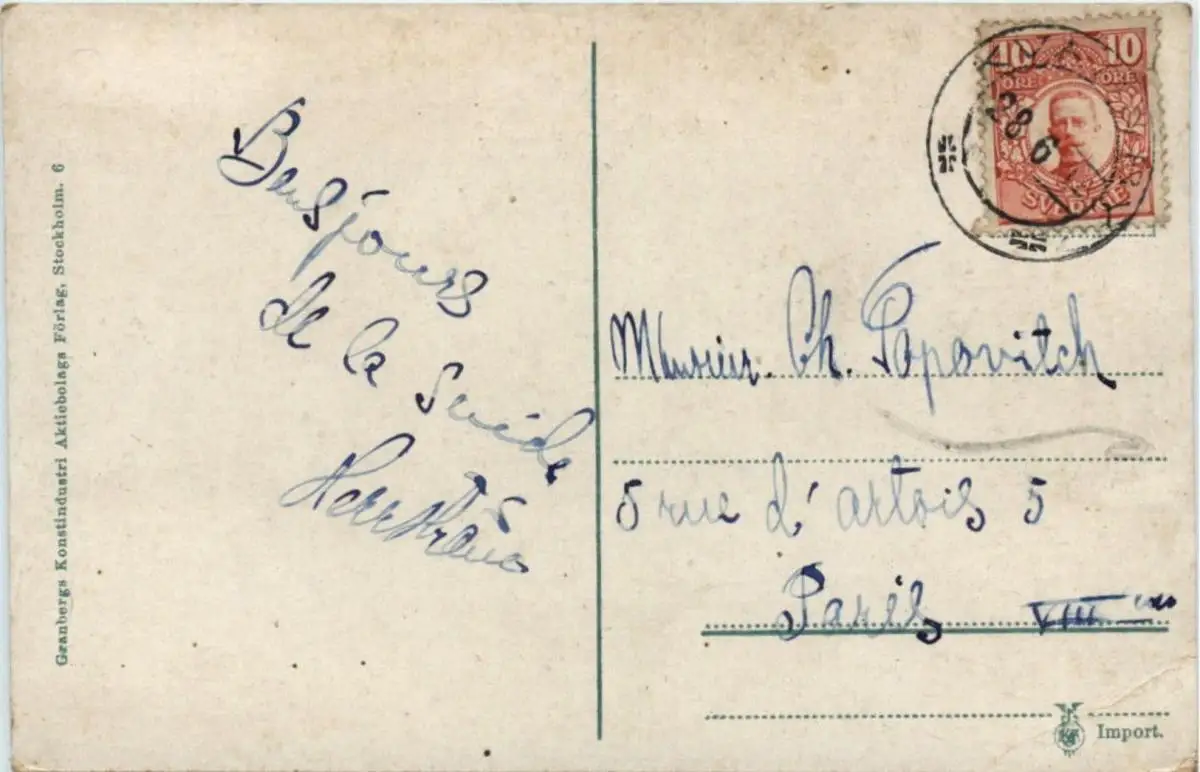 Granbergs Konstindustri Aktiebolags Förlag, Stockholm. 6
Bensjours
de la Suède
10 10
ÖRE ÖRE
SVERIGE
28 6
Monsieur. Ch. Popovitch
5 rue d'artois 5
Paris VIII me
Import.